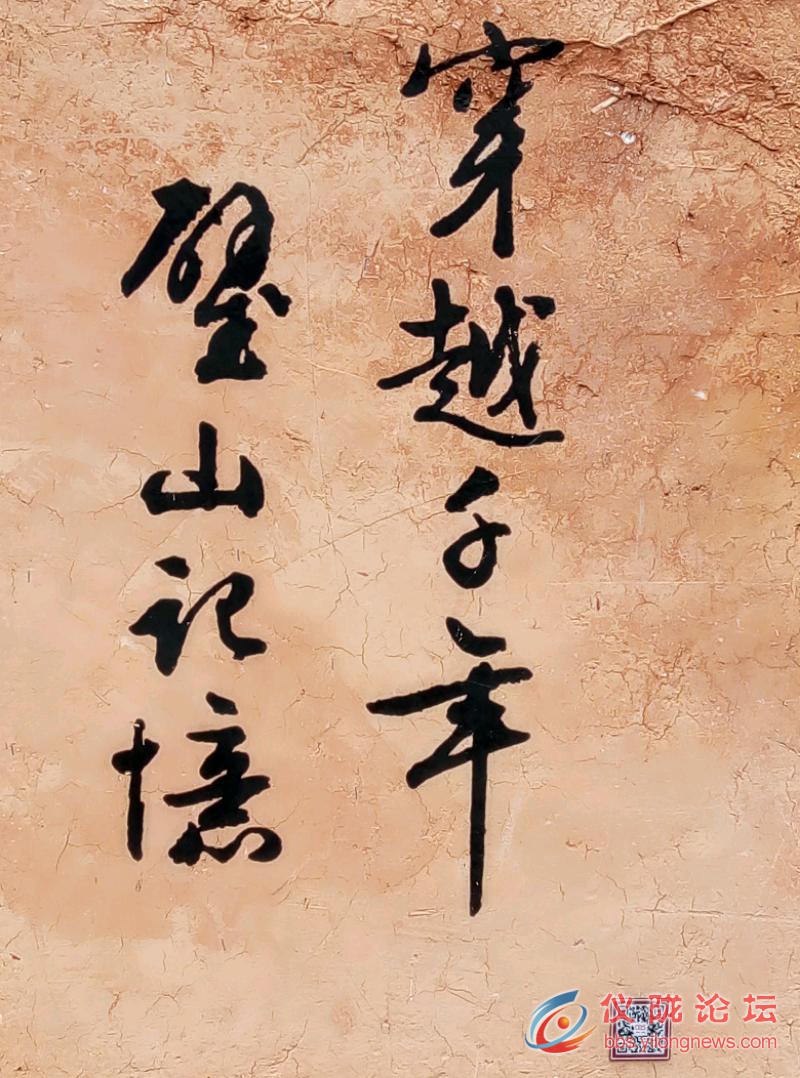 穿越千年
璧山记憶
仪陇论坛
bbs.yilongnews.com